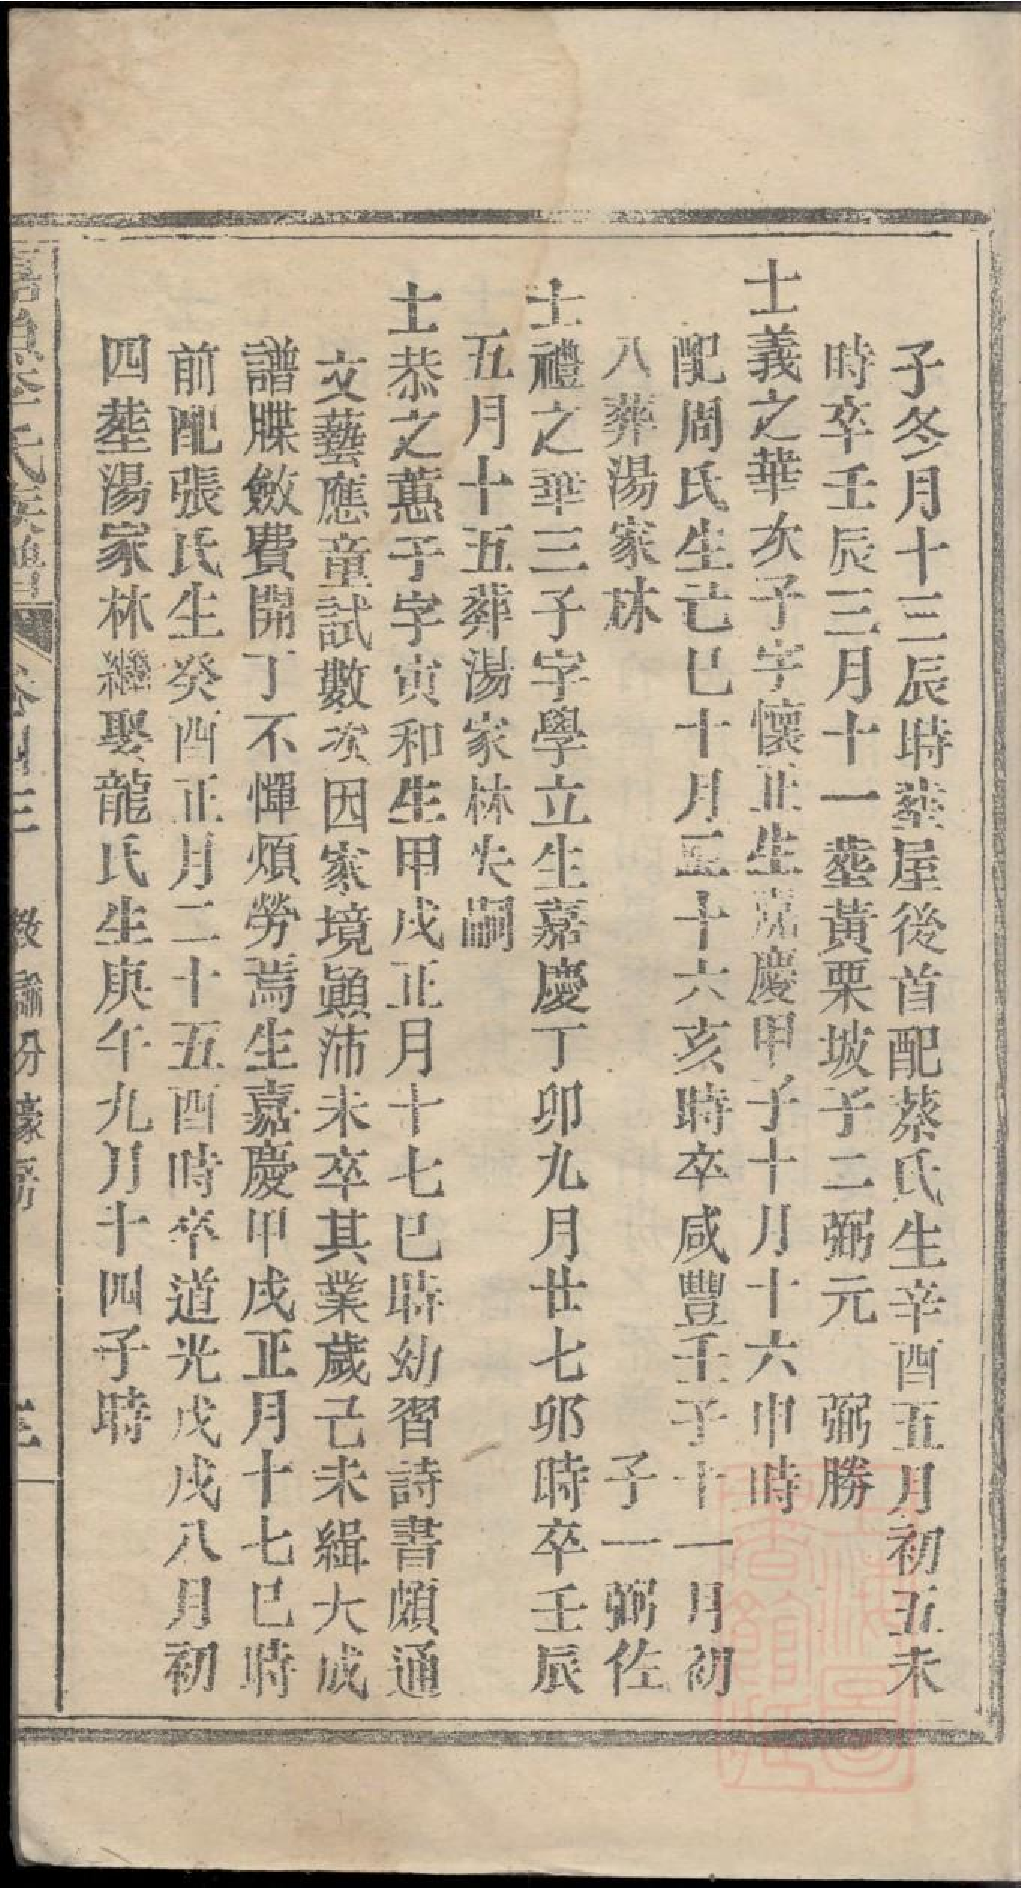 子冬月十三辰時塟屋後首配蔡氏生辛酉五月初五未
時卒壬辰三月十一塟黃栗坡子二弼元　弼勝
士義之華次子字懷正生嘉慶甲子十月十六申時
配周氏生己巳十月二十六亥時卒咸豐壬子十一月初
八葬湯家林　子一弼佐
士禮之華三子字學立生嘉慶丁卯九月廿七卯時卒壬辰
五月十五葬湯家林失嗣
士恭之蕙子字寅和生甲戌正月十七巳時幼習詩書頗通
文藝應童試數次因家境顚沛未卒其業歲己未緝大成
譜牒斂費開丁不憚煩勞焉生嘉慶甲戌正月十七巳時
前配張氏生癸酉正月二十五酉時卒道光戊戌八月初
四塟湯家林繼娶龍氏生庚午九月十四子時